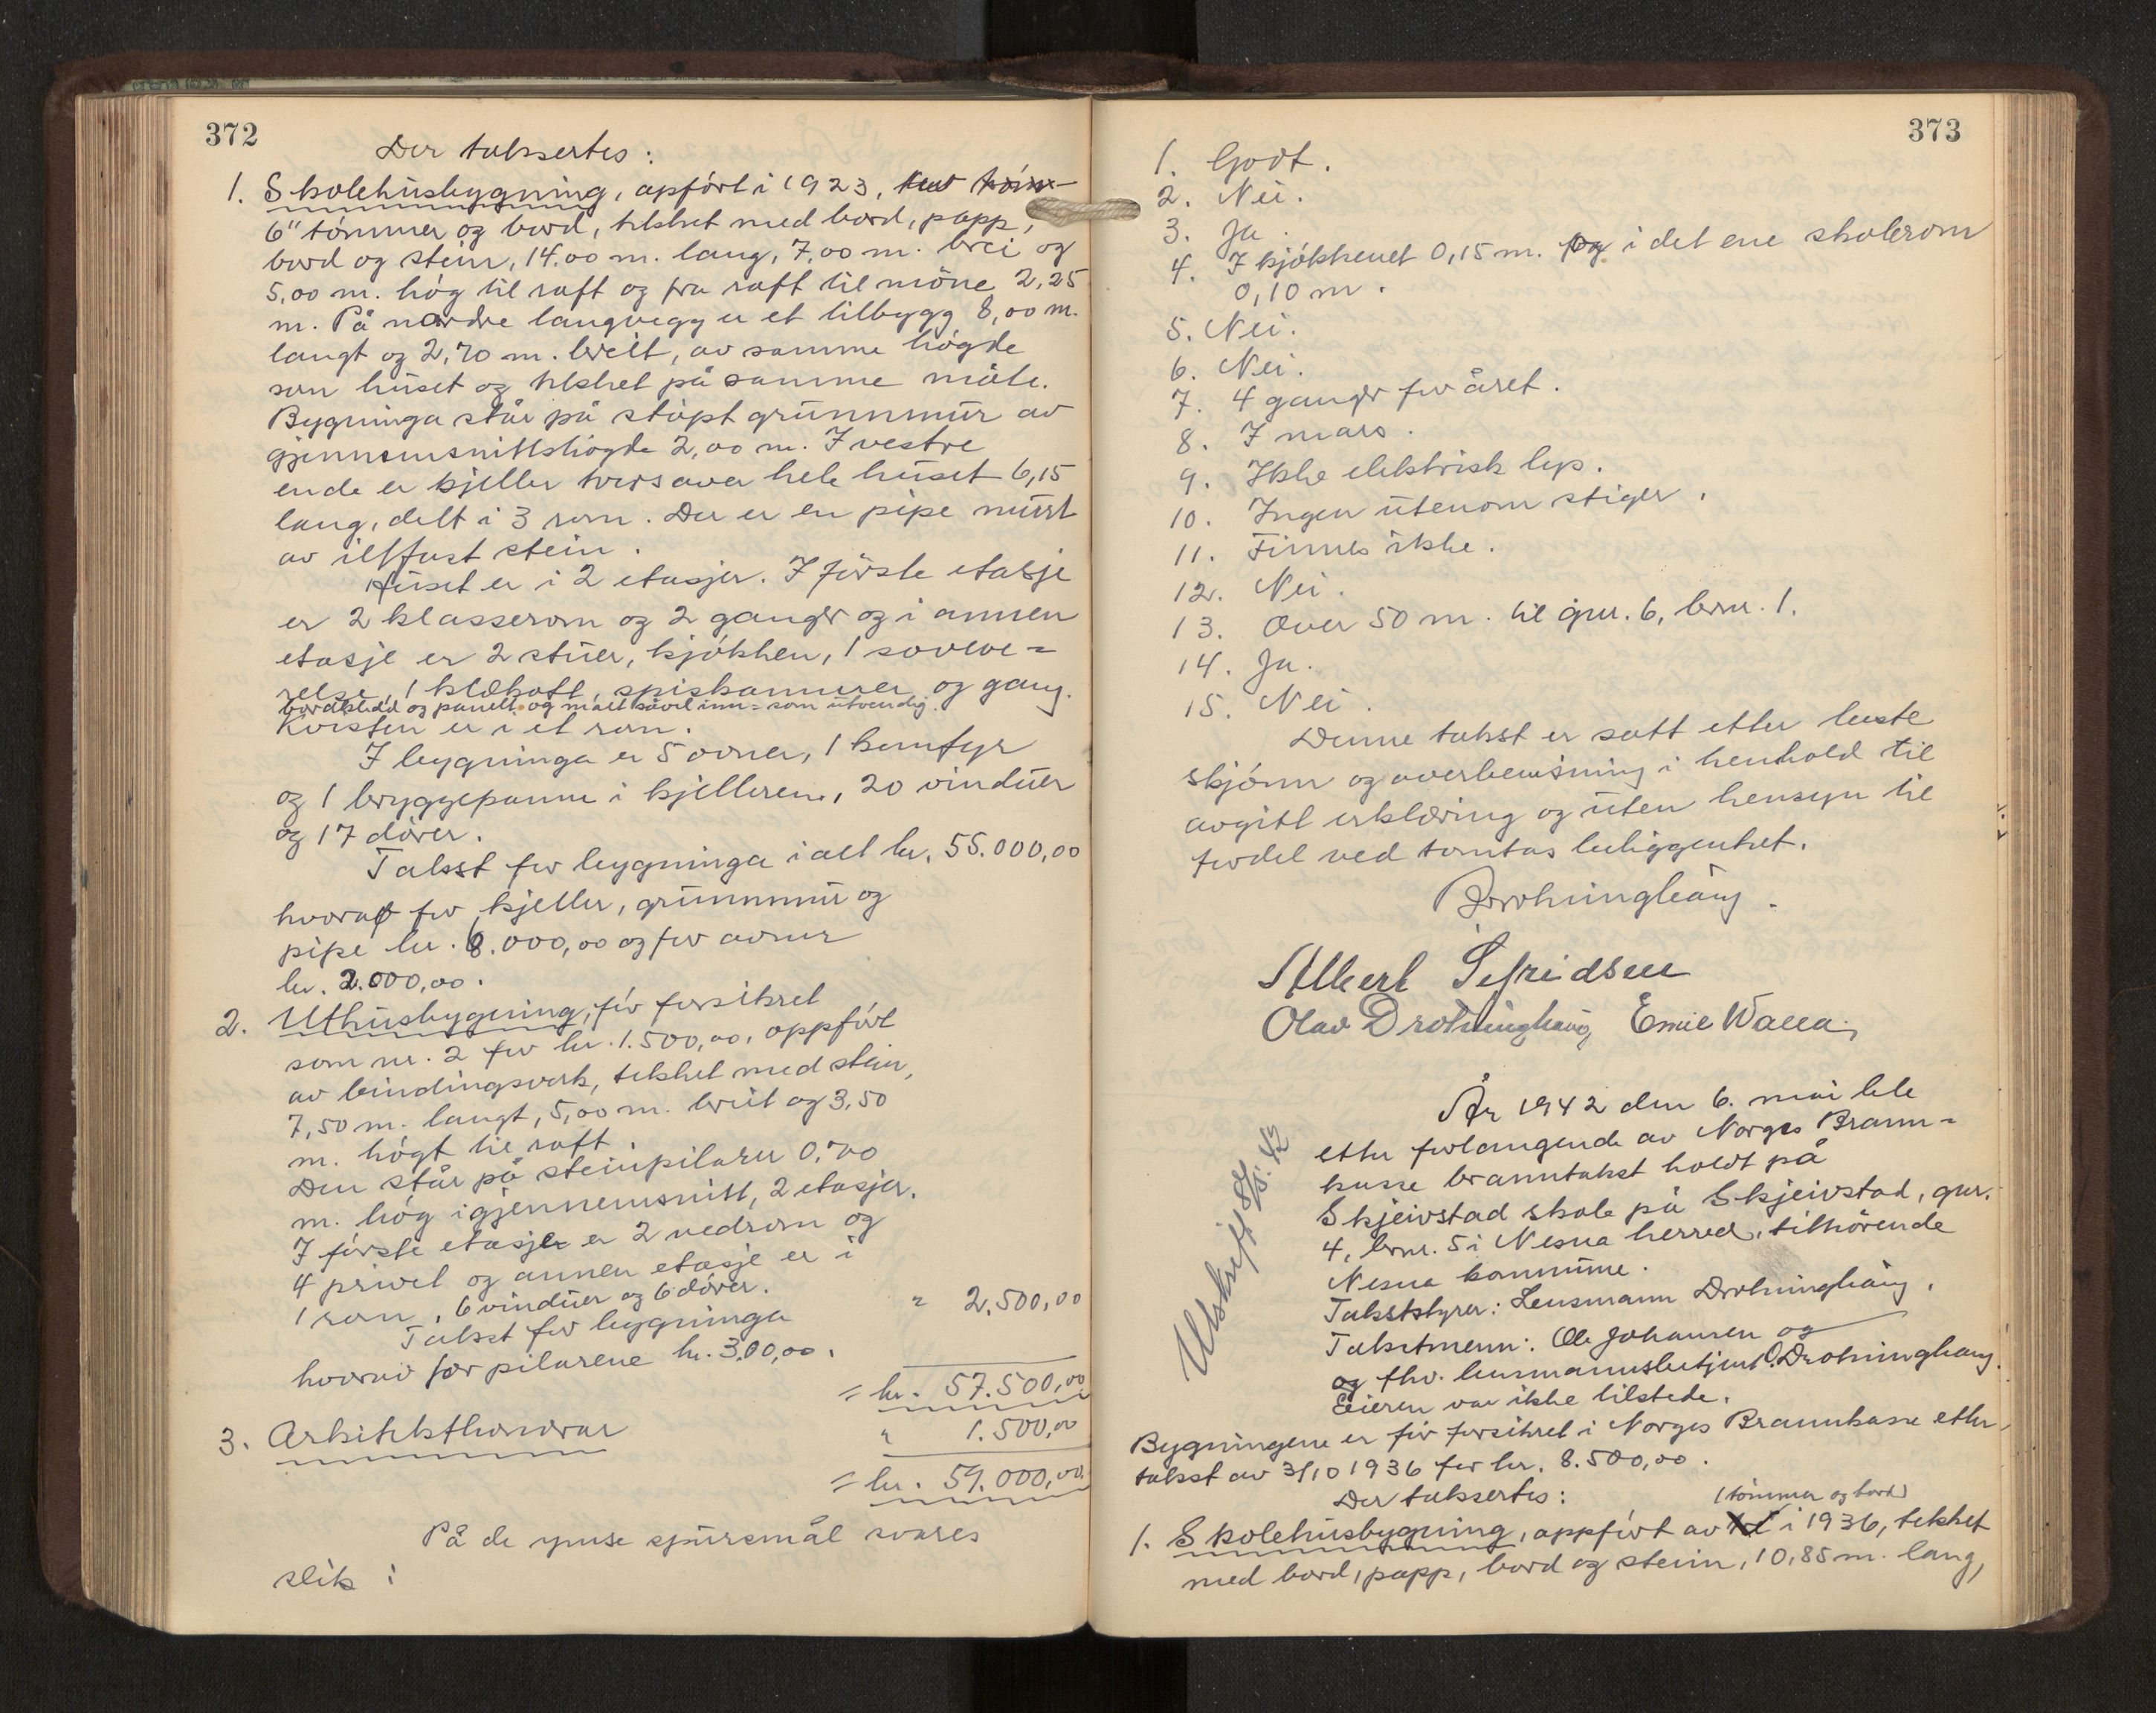 372
Der taksertes:
1. Skolehusbygning, opført i 1923, lav tøm-
6" tømmer og bord, tekket med bord, papp,
bord og stein, 14.00 m. lang, 7,00 m. brei og
5,00 m. høg til raft og fra raft til møne 2,25
m. På nordre langvegg er et tilbygg 8,00 m.
langt og 2,70 m. breit, av samme høgde
som huset og tekket på samme måte.
Bygninga står på støpt grunnmur av
gjennemsnittshøgde 2,00 m. I vestre
ende er kjeller tvers over hele huset 6,15
lang, delt i 3 rom. Der er en pipe murt
av ildfast stein.
Huset er i 2 etasjer. I første etasje
er 2 klasserom og 2 ganger og i annen
etasje er 2 stuer, kjøkken, 1 sovevæ=
relse, 1 klækott, spiskammer og gang.
bordkledd og panelt og malt såvel inn= som utvendig.
Kvisten er i et rom.
I bygninga er 5 ovner, 1 komfyr
og 1 bryggepanne i kjelleren, 20 vinduer
og 17 dører.
Takst for bygninga i alt kr. 55.000,00
hvorav for kjeller, grunnmur og
pipe kr. 8.000,00 og for ovner
kr. 2.000,00.
2. Uthusbygning, før forsikret
som nr. 2 for kr. 1.500,00, oppført
av bindingsverk, tekket med stein,
7,50 m. langt, 5,00 m. breit og 3,50
m. høgt til raft.
Den står på steinpilarer 0,70
m. høg i gjennemsnitt, 2 etasjer.
I første etasje er 2 vedrom og
4 privet og annen etasje er i
1 rom, 6 vinduer og 6 dører.
Takst for bygninga " 2.500,00
hvorav for pilarene kr. 300,00.
= kr. 57.500,00
3. Arkitekthonorar " 1.500,00
= kr. 59.000,00
På de ymse spursmål svares
slik:
373
1. Godt.
2. Nei.
3. Ja.
4. I kjøkkenet 0,15 m. og i det ene skolerom
0,10 m.
5. Nei.
6. Nei.
7. 4 ganger for året.
8. I mars.
9. Ikke elektrisk lys.
10. Ingen utenom stiger.
11. Finnes ikke.
12. Nei.
13. Over 50 m. til gnr. 6, brnr. 1.
14. Ja.
15. Nei.
Denne takst er satt etter beste
skjønn og overbevisning i henhold til
avgitt erklæring og uten hensyn til
fordel ved tomtas beliggenhet.
Drotninghaug.
Albert Sefridsen
Olav Drotninghaug Emil Walla
År 1942 den 6. mai ble
etter forlangende av Norges Brann=
kasse branntakst holdt på
Skjeivstad skole på Skjeivstad, gnr.
4, brnr. 5 i Nesna herred, tilhørende
Nesna kommune.
Takststyrer: Lensmann Drotninghaug.
Takstmenn: Ole Johansen og
og fhv. lensmannsbetjent O. Drotninghaug.
Eieren var ikke tilstede.
Utskrift 8/5. 42
Bygningene er før forsikret i Norges Brannkasse etter
takst av 3/10 1936 for kr. 8.500,00.
Der taksertes:
(tømmer og bord)
1. Skolehusbygning, oppført av i 1936, tekket
med bord, papp, bord og stein, 10,85 m. lang,